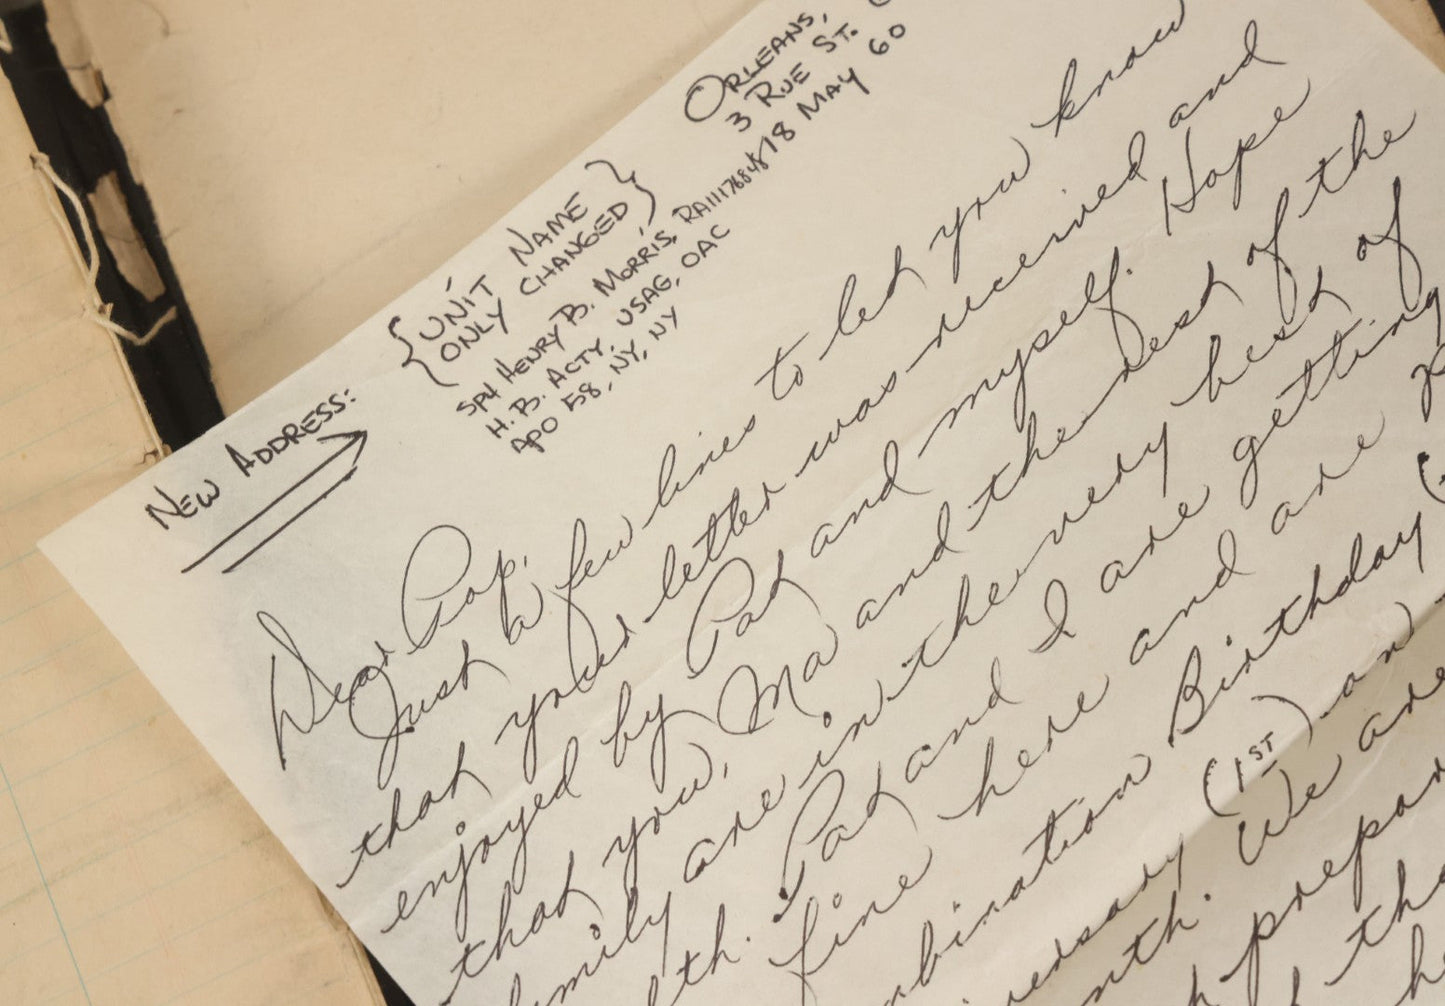 ORLEANS,
3 RUE ST.
18 MAY 60
{UNIT NAME
ONLY CHANGED}
NEW ADDRESS:
SP4 HENRY B. MORRIS, RA11176848
H. B. ACTY, USAG, OAC
APO 58, NY, NY
Dear Pop,
Just a few lines to let you know
that your letter was received and
enjoyed by Pat and myself. Hope
that you, Ma and the rest of the
family are in the very best of
lth. Pat and I are getting
fine here and are
bination Birthday (
versary (1ST) on
nth. We are
prepar